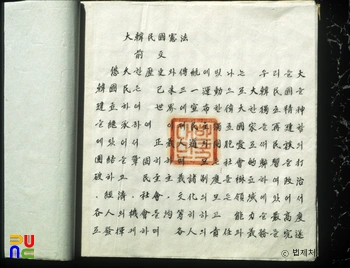 大韓民國憲法
前文
悠久한 歷史와 傳統에 빛나는 우리들 大
韓國民은 己未三一運動으로 大韓民國을
建立하여 世界에 宣布한 偉大한 獨立精神
을 繼承하여 이제 民主獨立國家를 再建함에
있어서 正義人道와 同胞愛로써 民族의
團結을 鞏固히 하며 모든 社會的 弊習을 打
破하고 民主主義諸制度를 樹立하여 政治
經濟, 社會, 文化의 모든 領域에 있어서
各人의 機會를 均等히 하고 能力을 最高度로
發揮케 하며 各人의 責任과 義務를 完遂
© 법제처